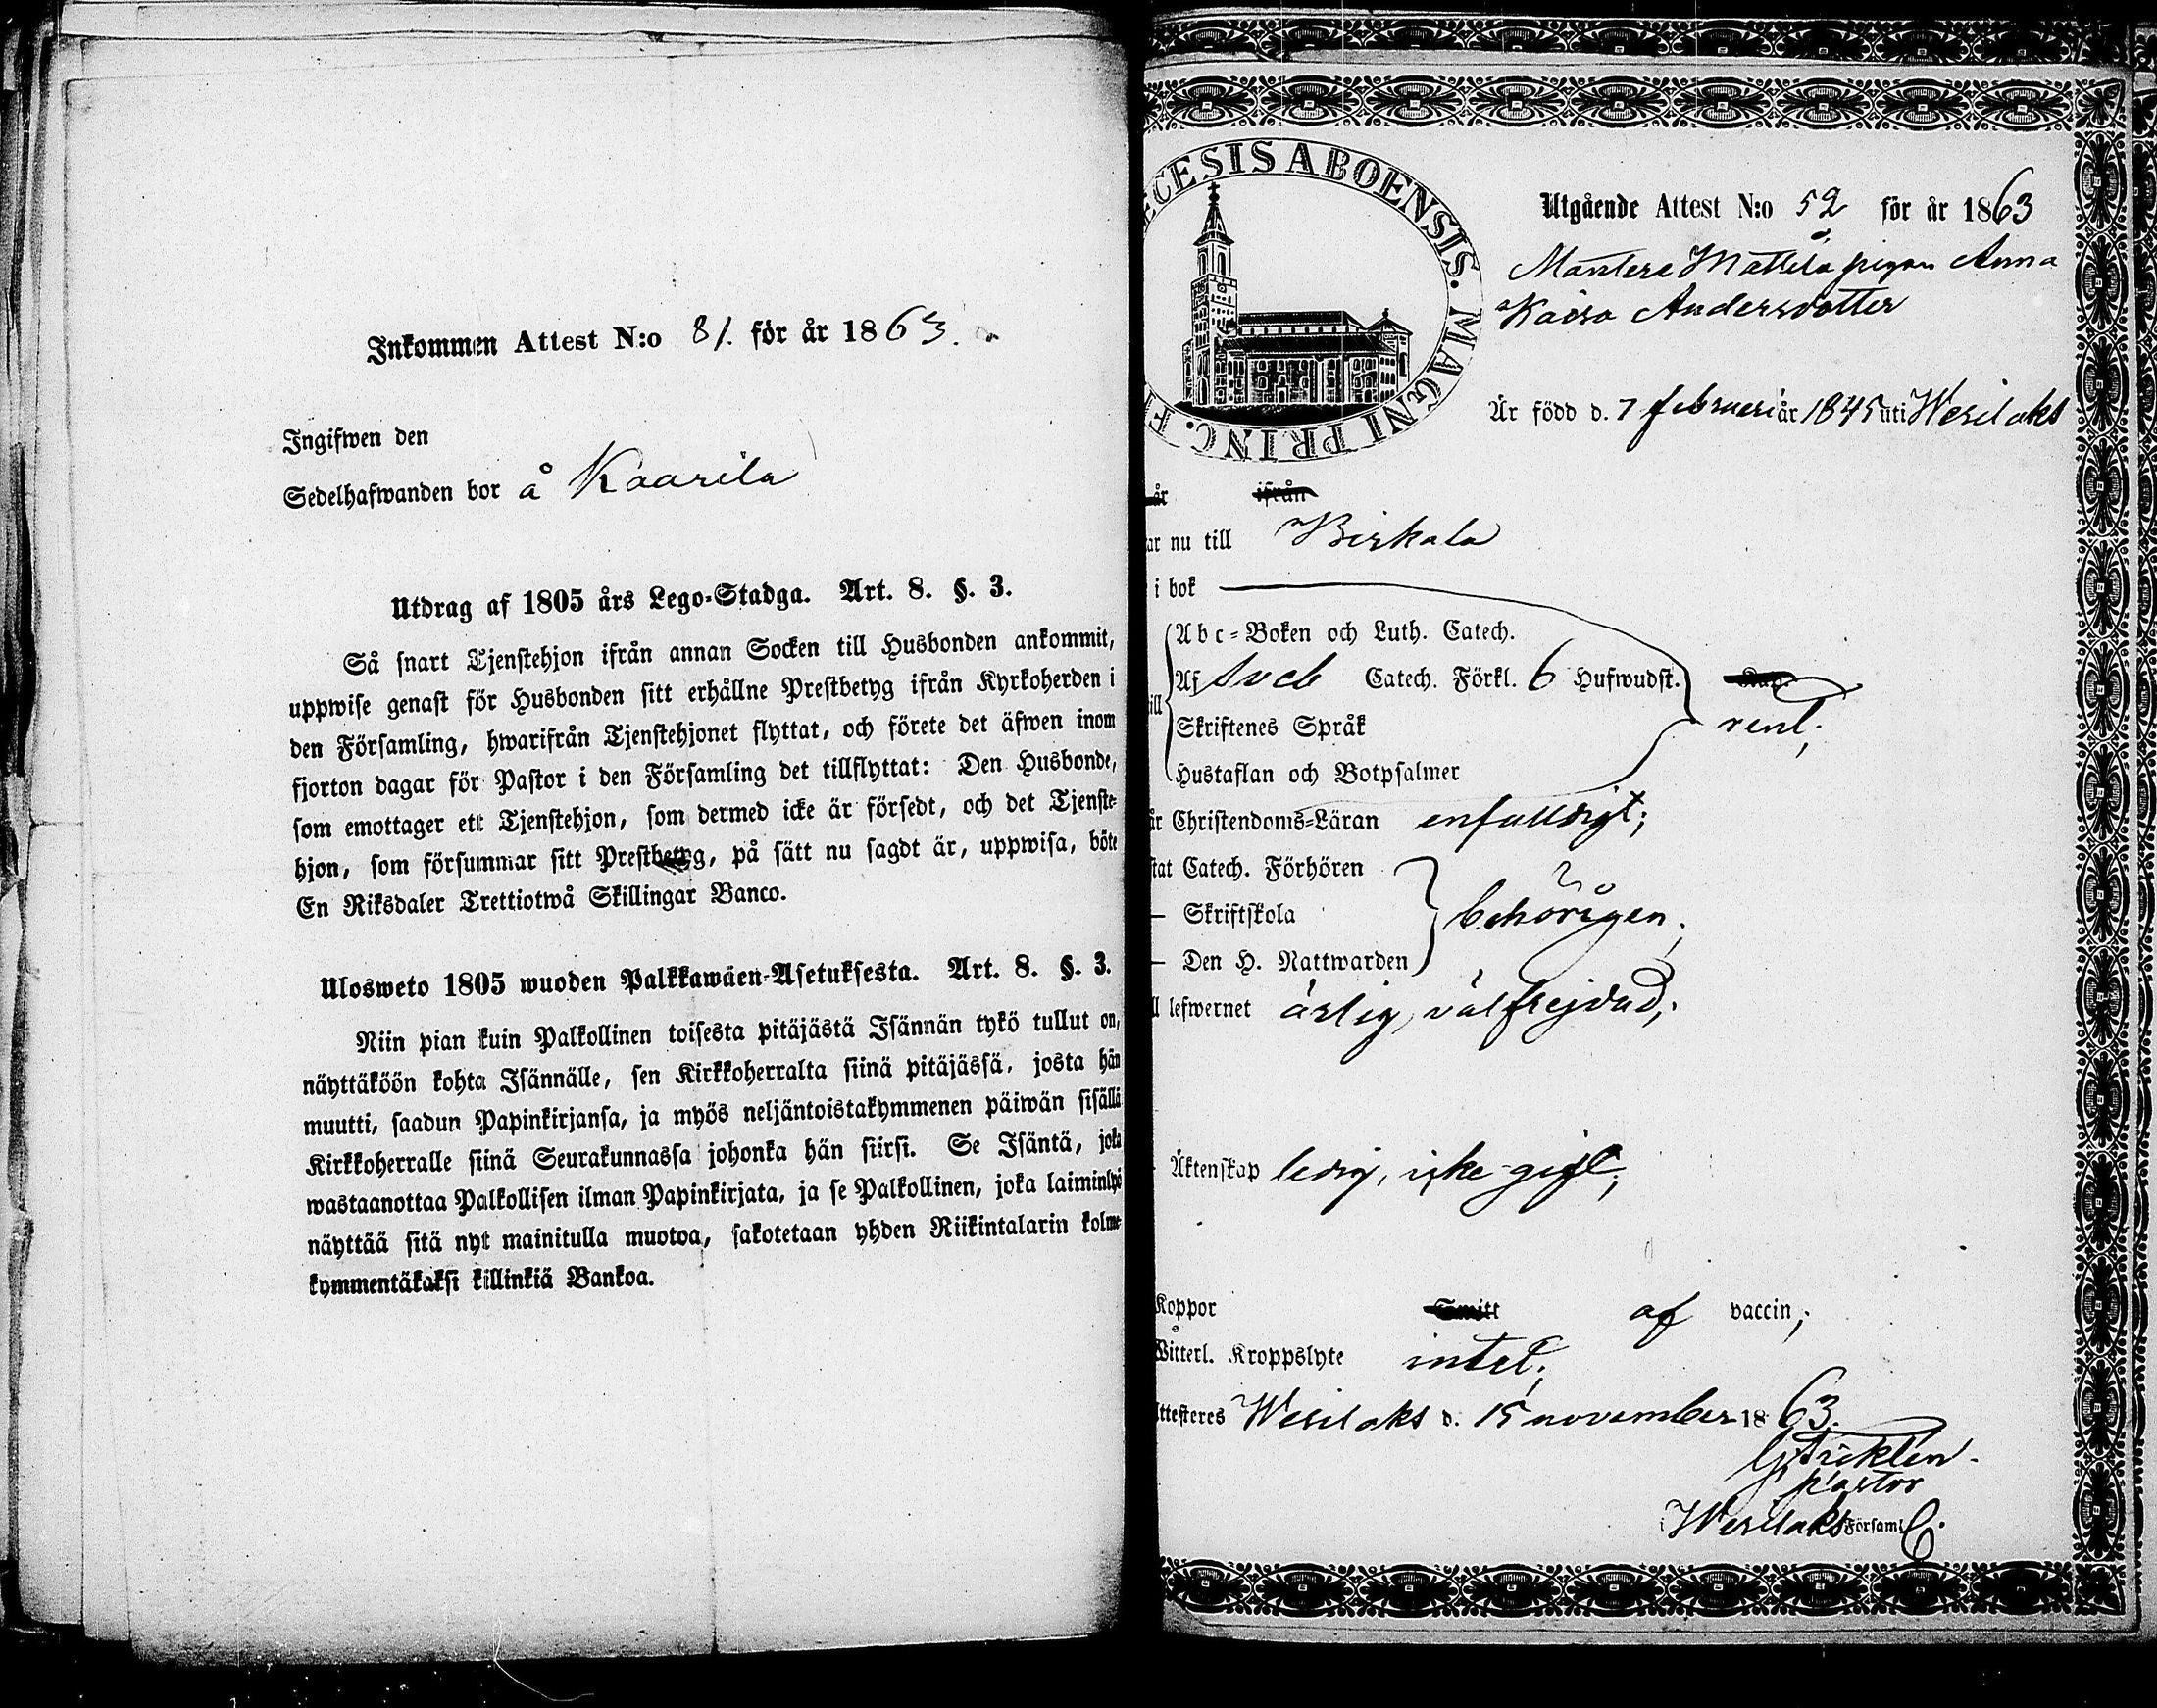 Inkommen Attest N:o 81. för år 1863.
Ingifwen den
Sedelhafwanden bor å Kaarila
Utdrag af 1805 års Lego-Stadga. Art. 8. §. 3.
Så snart Tjenstehjon ifrån annan Socken till Husbonden ankommit,
uppwise genast för Husbonden sitt erhållne Prestbetyg ifrån Kyrkoherden i
den Församling, hwarifrån Tjenstehjonet flyttat, och förete det äfwen inom
fjorton dagar för Pastor i den Församling det tillflyttat: Den Husbonde,
som emottager ett Tjenstehjon, som dermed icke är försedt, och det Tjenste-
hjon, som försummar sitt Prestbetyg, på sätt nu sagdt är, uppwisa, böte
En Riksdaler Trettiotwå Skillingar Banco.
Ulosweto 1805 wuoden Palkkawäen-Asetuksesta. Art. 8. §. 3.
Niin pian kuin Palkollinen toisesta pitäjästä Isännän tykö tullut on,
näyttäköön kohta Isännälle, sen Kirkkoherralta siinä pitäjässä, josta hän
muutti, saadun Papinkirjansa, ja myös neljäntoistakymmenen päiwän sisällä
Kirkkoherralle siinä Seurakunnassa johonka hän siirsi. Se Isäntä, joka
wastaanottaa Palkollisen ilman Papinkirjata, ja se Palkollinen, joka laiminlyö
näyttää sitä nyt mainitulla muotoa, sakotetaan yhden Riikintalarin kolme-
kymmentäkaksi killinkiä Bankoa.
ECESIS ABOENSIS. MAGNI PRINC. F
Utgående Attest N:o 52 för år 1863
Mantere Mattila pigan Anna
Kaisa Andersdotter
Är född d. 7 februari år 1845 uti Wesilaks
år ifrån
ar nu till Birkala
i bok
Abc-Boken och Luth. Catech.
Af Sveb Catech. Förkl. 6 Hufwudst.
rent;
ill
Skriftenes Språk
Hustaflan och Botpsalmer
år Christendoms-Läran enfalldigt;
tat Catech. Förhören
— Skriftskola behörigen;
— Den H. Nattwarden
ll lefwernet ärlig, välfrejdad;
Äktenskap ledig, icke gift;
Koppor Smitt af vaccin;
Witterl. Kroppslyte intet;
ttesteres Wesilaks d. 15 november 1863.
pastor
i Wesilaks Församl.